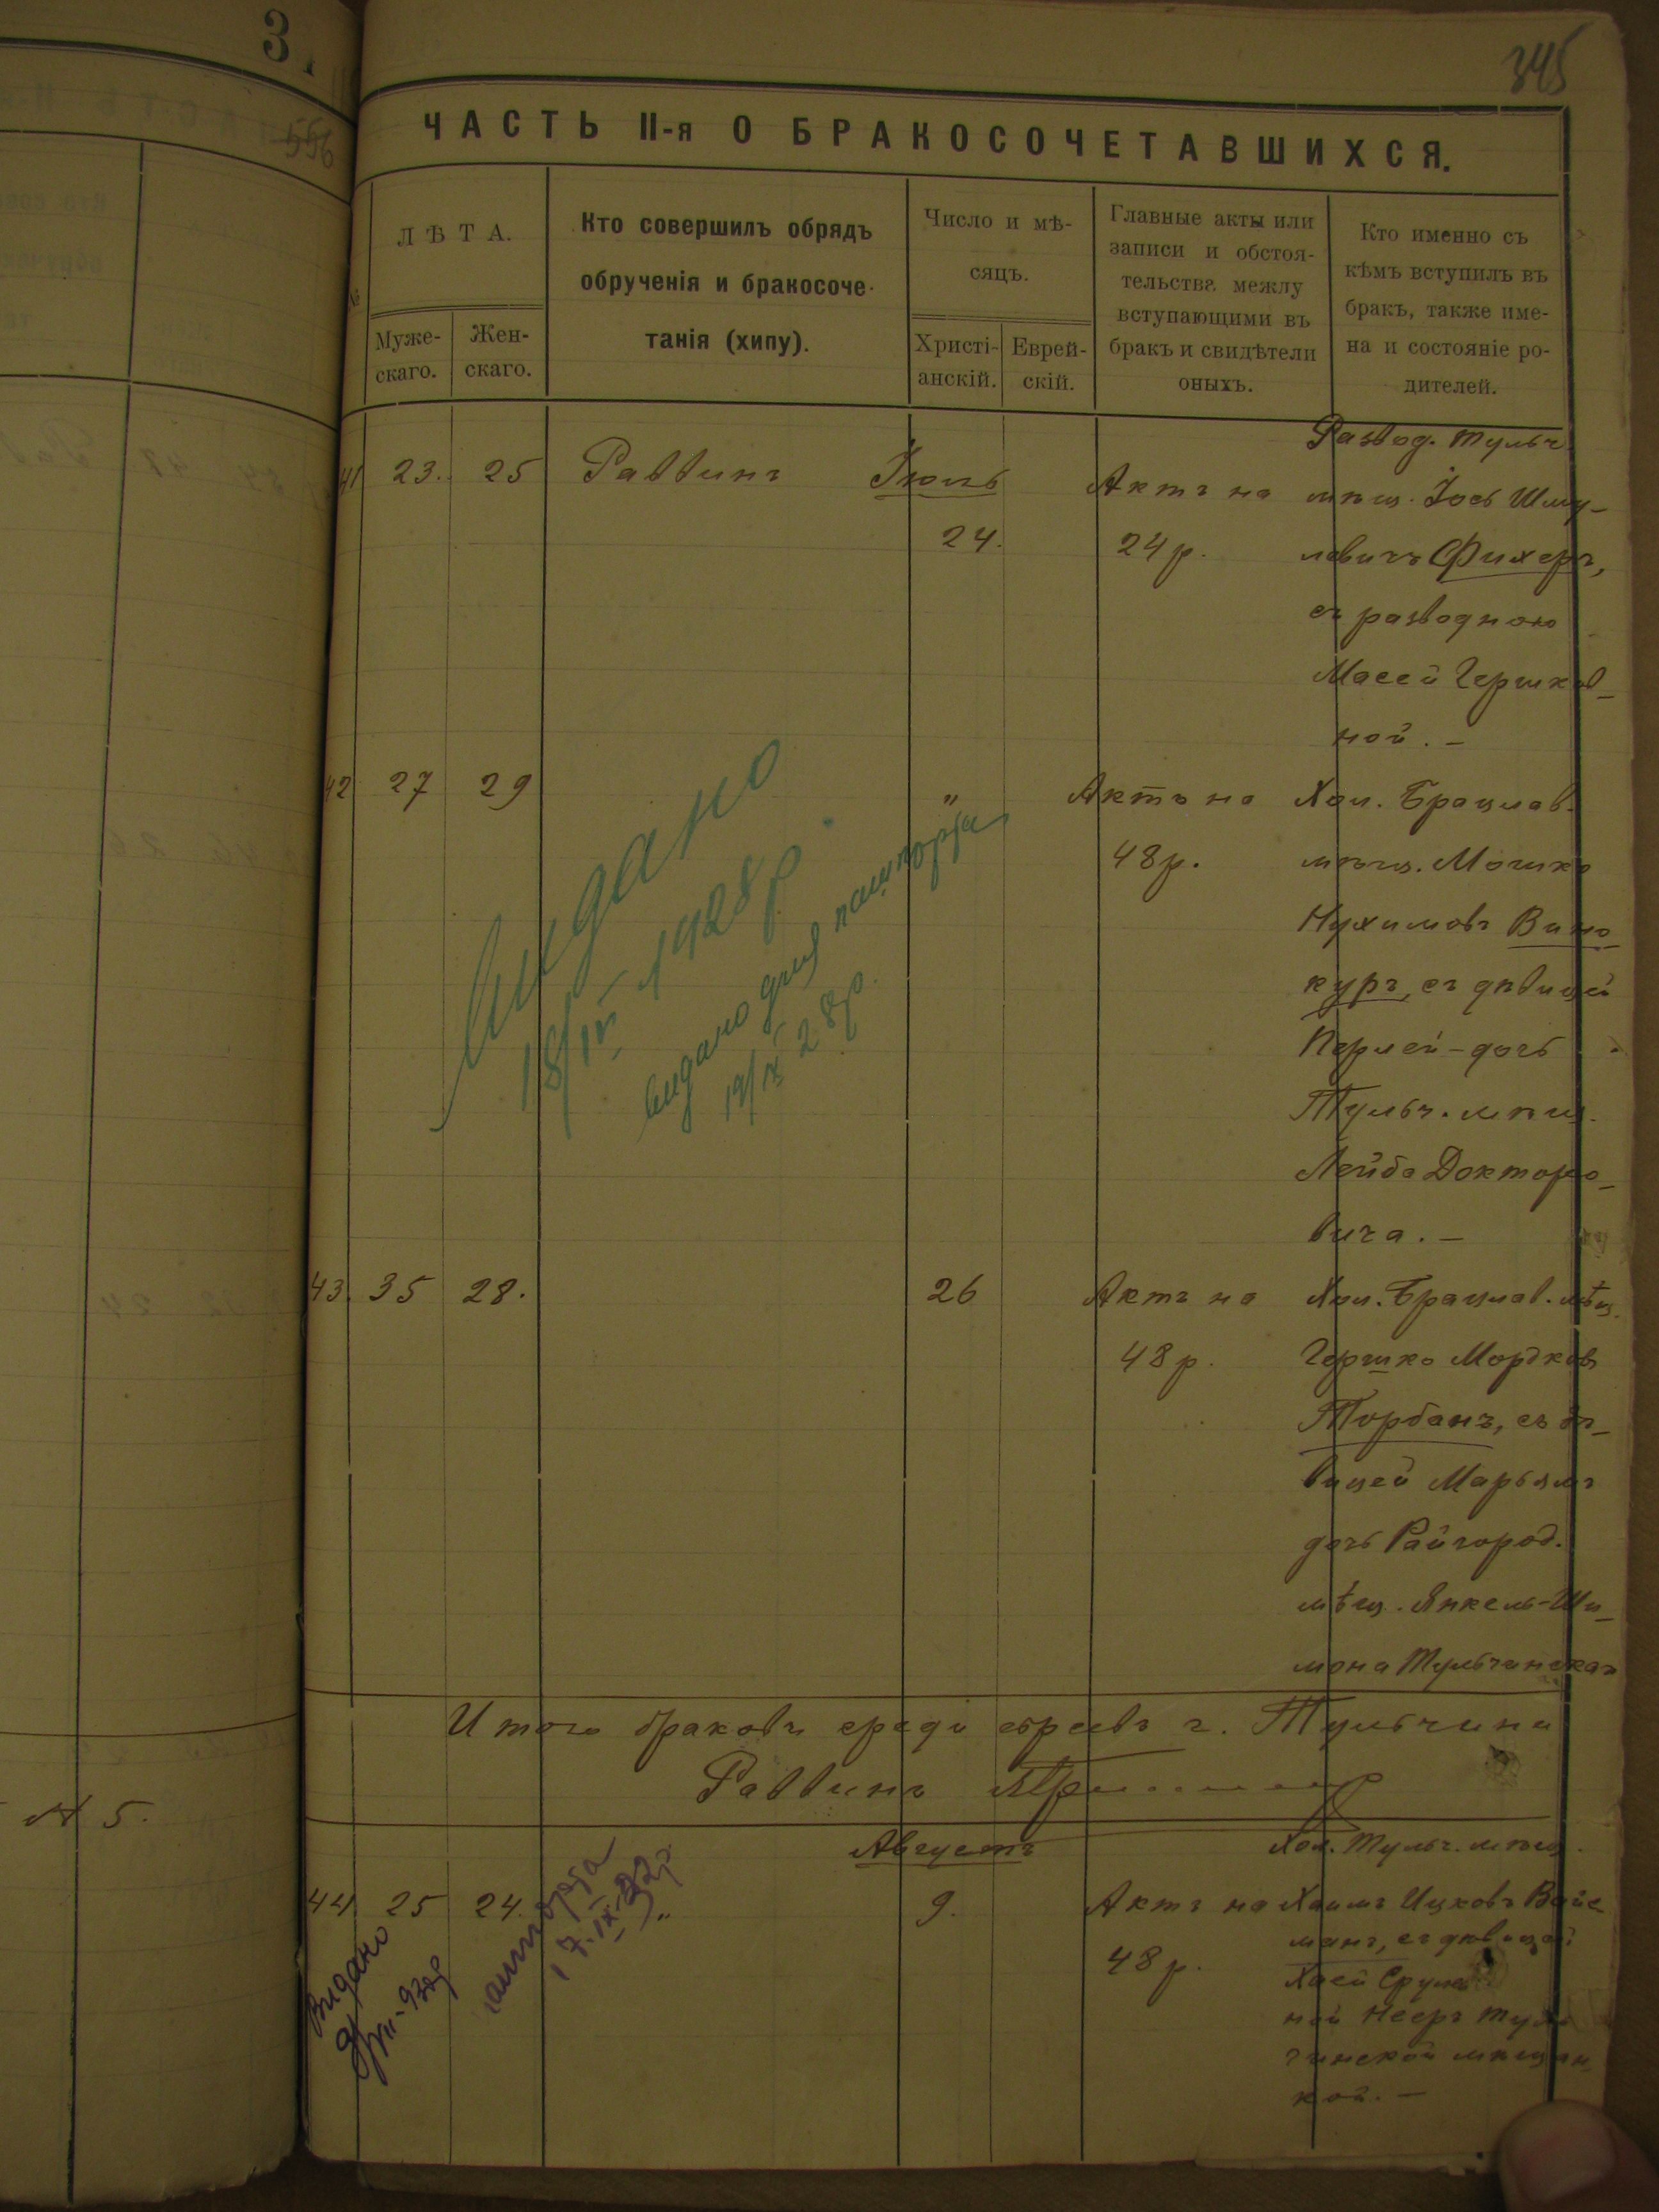 345
ЧАСТЬ II-я О БРАКОСОЧЕТАВШИХСЯ.
№
ЛѢТА.
Муже-
скаго.
Жен-
скаго.
Кто совершилъ обрядъ
обрученія и бракосоче-
танія (хипу).
Число и мѣ-
сяцъ.
Христі-
анскій.
Еврей-
скій.
Главные акты или
записи и обстоя-
тельства межлу
вступающими въ
бракъ и свидѣтели
оныхъ.
Кто именно съ
кѣмъ вступилъ въ
бракъ, также име-
на и состояніе ро-
дителей.
41 23. 25 Раввинъ Іюль
24.
Актъ на
24 р.
Развод. Тульч.
мѣщ. Іось Шму-
левичъ Фихеръ,
съ разводною
Масей Гершков-
ной. —
42 27 29 "
Актъ на
48 р.
Хол. Брацлав.
мѣщ. Мошко
Нухимовъ Вино-
куръ, съ дѣвицей
Перлей - дочь
Тульч. мѣщ.
Лейба Докторо-
вича. —
Видано
18/IV 1928 р
видано для пашпорта
19/IX 28 р.
43. 35 28. 26
Актъ на
48 р.
Хол. Брацлав. мѣщ.
Гершко Мордковъ
Торбанъ, съ дѣ-
вицей Марьямъ
дочь Райгород.
мѣщ. Янкель-Ши-
мона Тульчинскаго
Итого браковъ среди евреевъ г. Тульчина
Раввинъ
Августъ
44 25 24. " 9.
Актъ на
48 р.
Хол. Тульч. мѣщ.
Хаимъ Ицковъ Вайс-
манъ, съ дѣвицей
Хаей Срулев-
ной Нееръ Туль-
чинской мѣщан-
кой. —
Видано
пашпорта
17.IX-32р.
N 5.